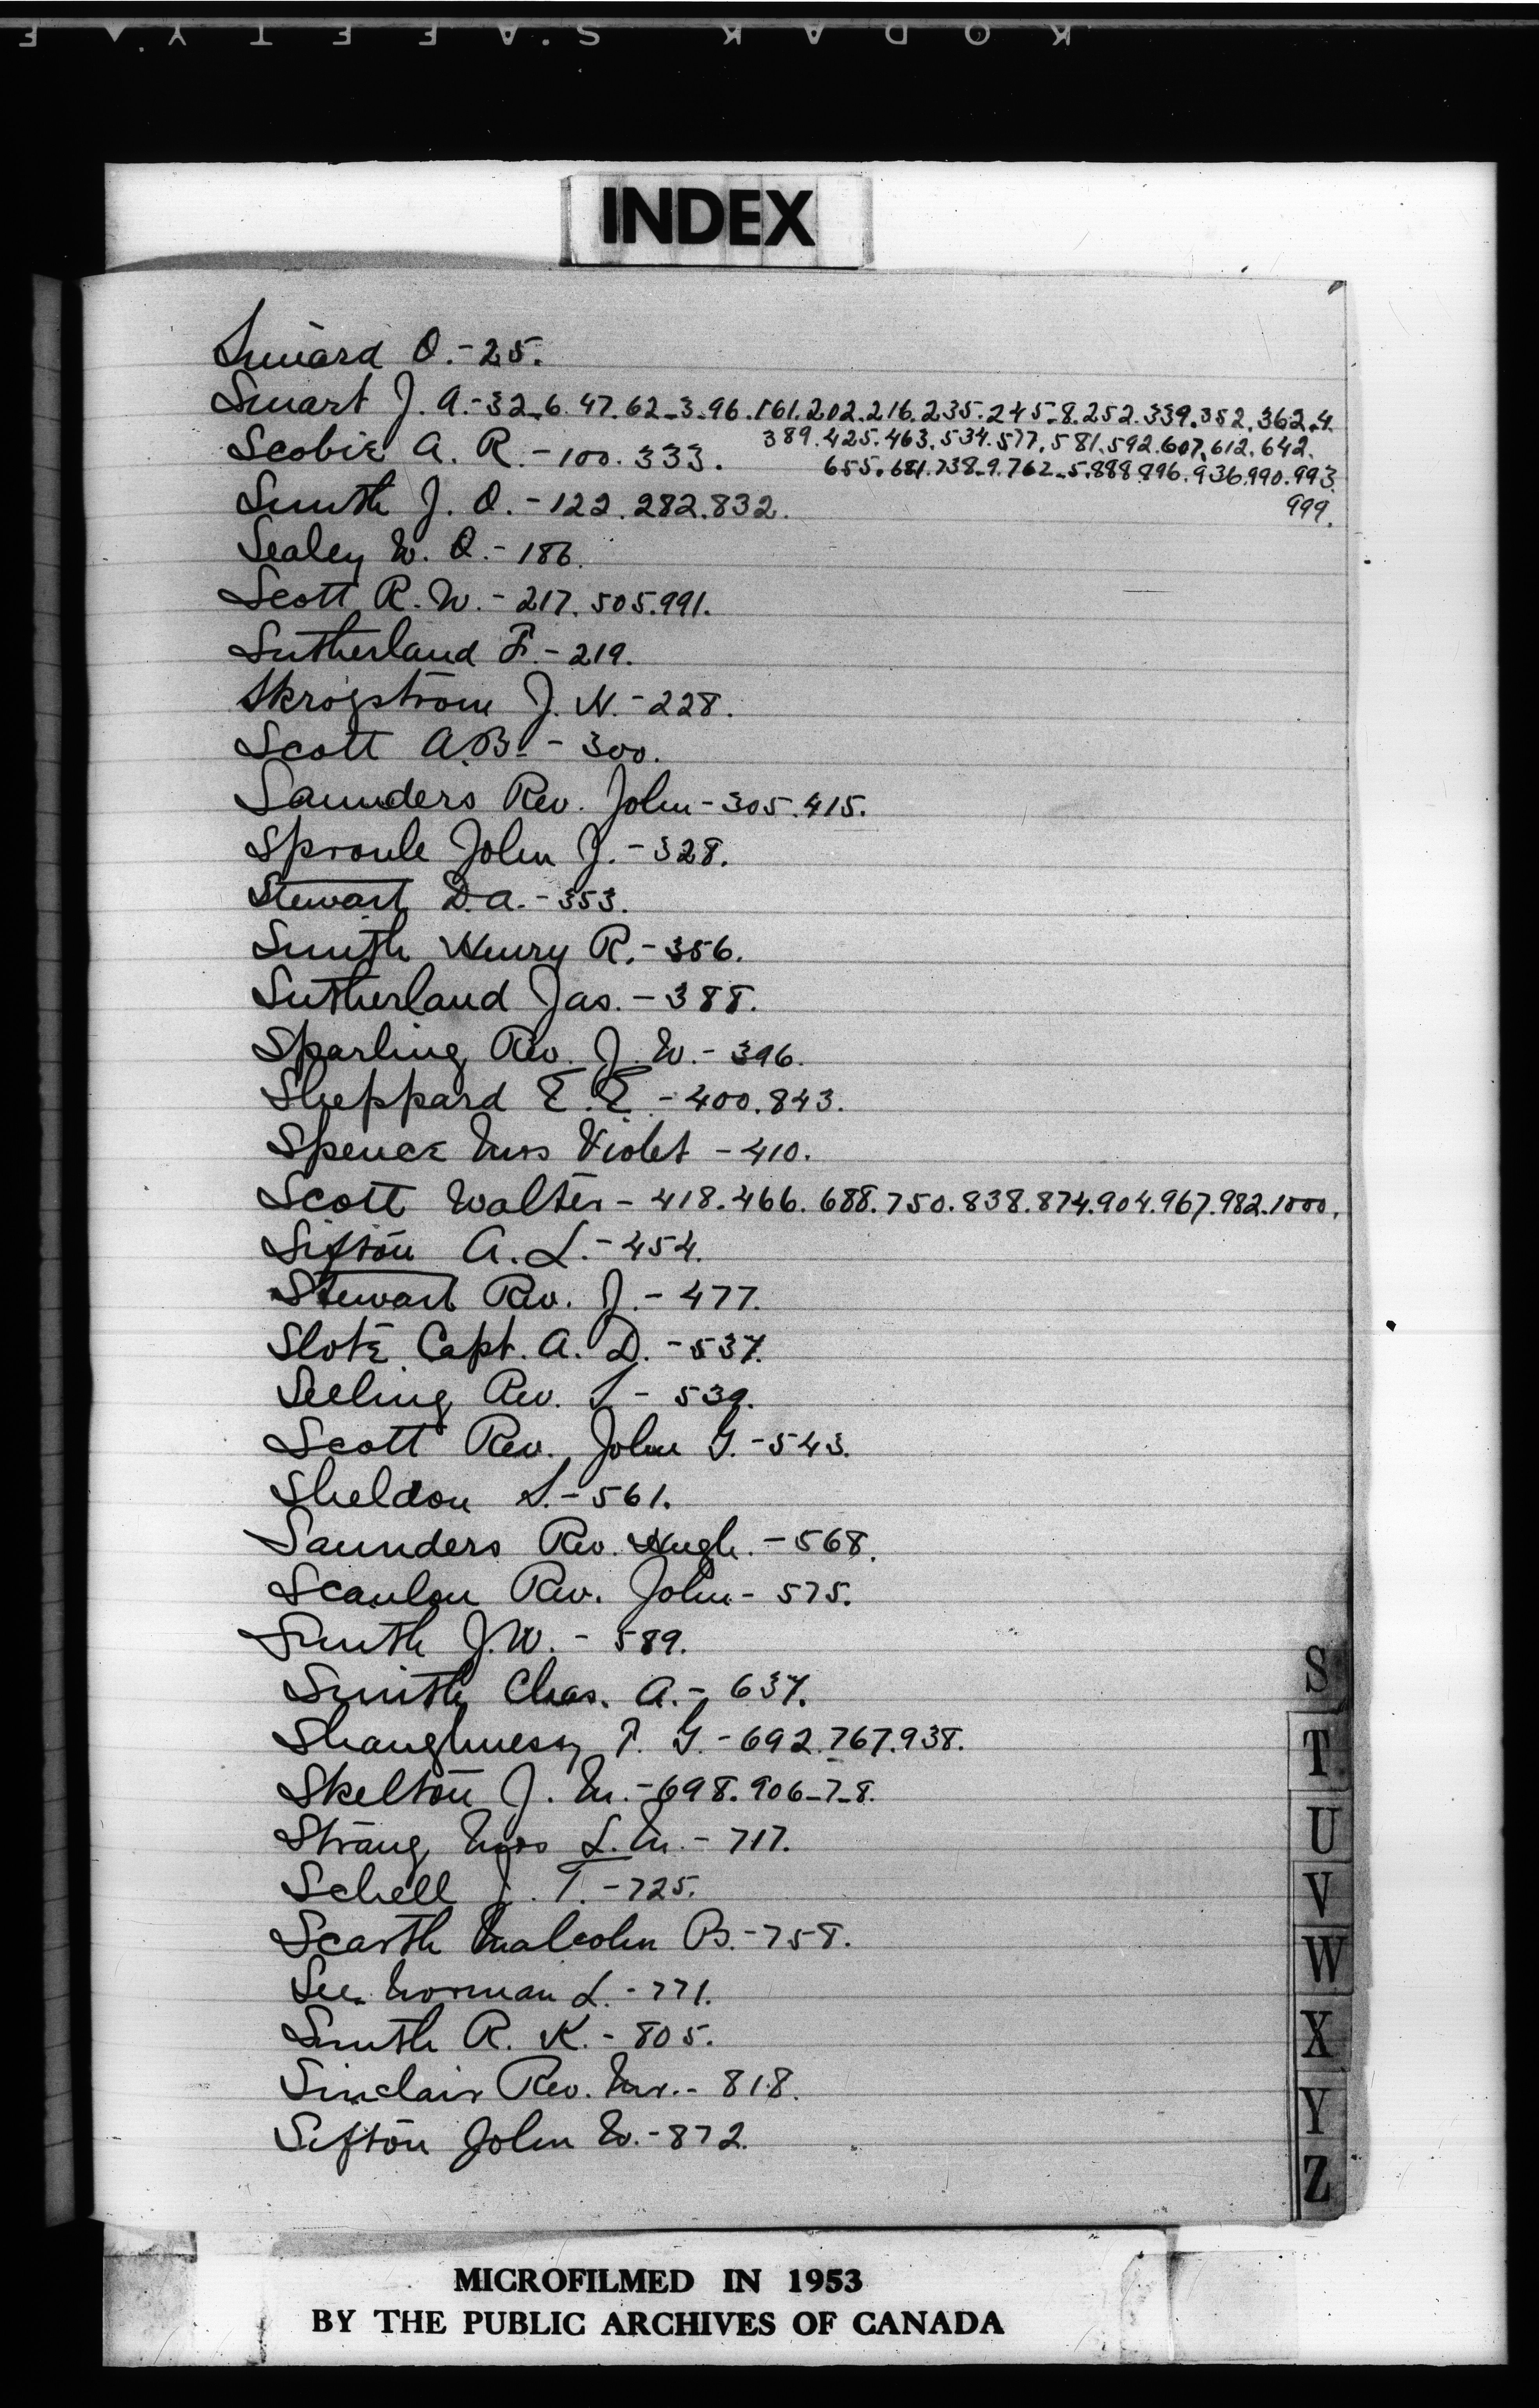 KODAK SAFETY
INDEX
Simard O. - 25.
Smart J. A. - 32_6. 47. 62_3. 96. 161. 202. 216. 235. 245_8. 252. 339. 352. 362_4.
389. 425. 463. 534. 577. 581. 592. 607. 612. 642.
Scobie A. R. - 100. 333.
655. 681. 738_9. 762_5. 888. 896. 936. 990. 993.
Smith J. O. - 122. 282. 832.
999.
Sealey W. O. - 186.
Scott R. W. - 217. 505. 991.
Sutherland F. - 219.
Skrogstrom J. N. - 228.
Scott A. B. - 300.
Saunders Rev. John - 305. 415.
Sproule John J. - 328.
Stewart D. A. - 353.
Smith Henry R. - 356.
Sutherland Jas. - 388.
Sparling Rev. J. W. - 396.
Sheppard E. E. - 400. 843.
Spence Miss Violet - 410.
Scott Walter - 418. 466. 688. 750. 838. 874. 904. 967. 982. 1000.
Sifton A. L. - 454.
Stewart Rev. J. - 477.
Slote Capt. A. D. - 537.
Seeling Rev. S - 539.
Scott Rev. John G. - 543.
Sheldon S. - 561.
Saunders Rev. Hugh. - 568.
Scanlon Rev. John - 575.
Smith J. W. - 589.
Smith Chas. A. - 637.
Shaughnessy T. G. - 692. 767. 938.
Skelton J. M. - 698. 906_7_8.
Strang Miss L. M. - 717.
Schell J. T. - 725.
Scarth Malcolm B. - 758.
See Norman L. - 771.
Smith R. K. - 805.
Sinclair Rev. Mr. - 818.
Sifton John W. - 872.
S
T
U
V
W
X
Y
Z
MICROFILMED IN 1953
BY THE PUBLIC ARCHIVES OF CANADA